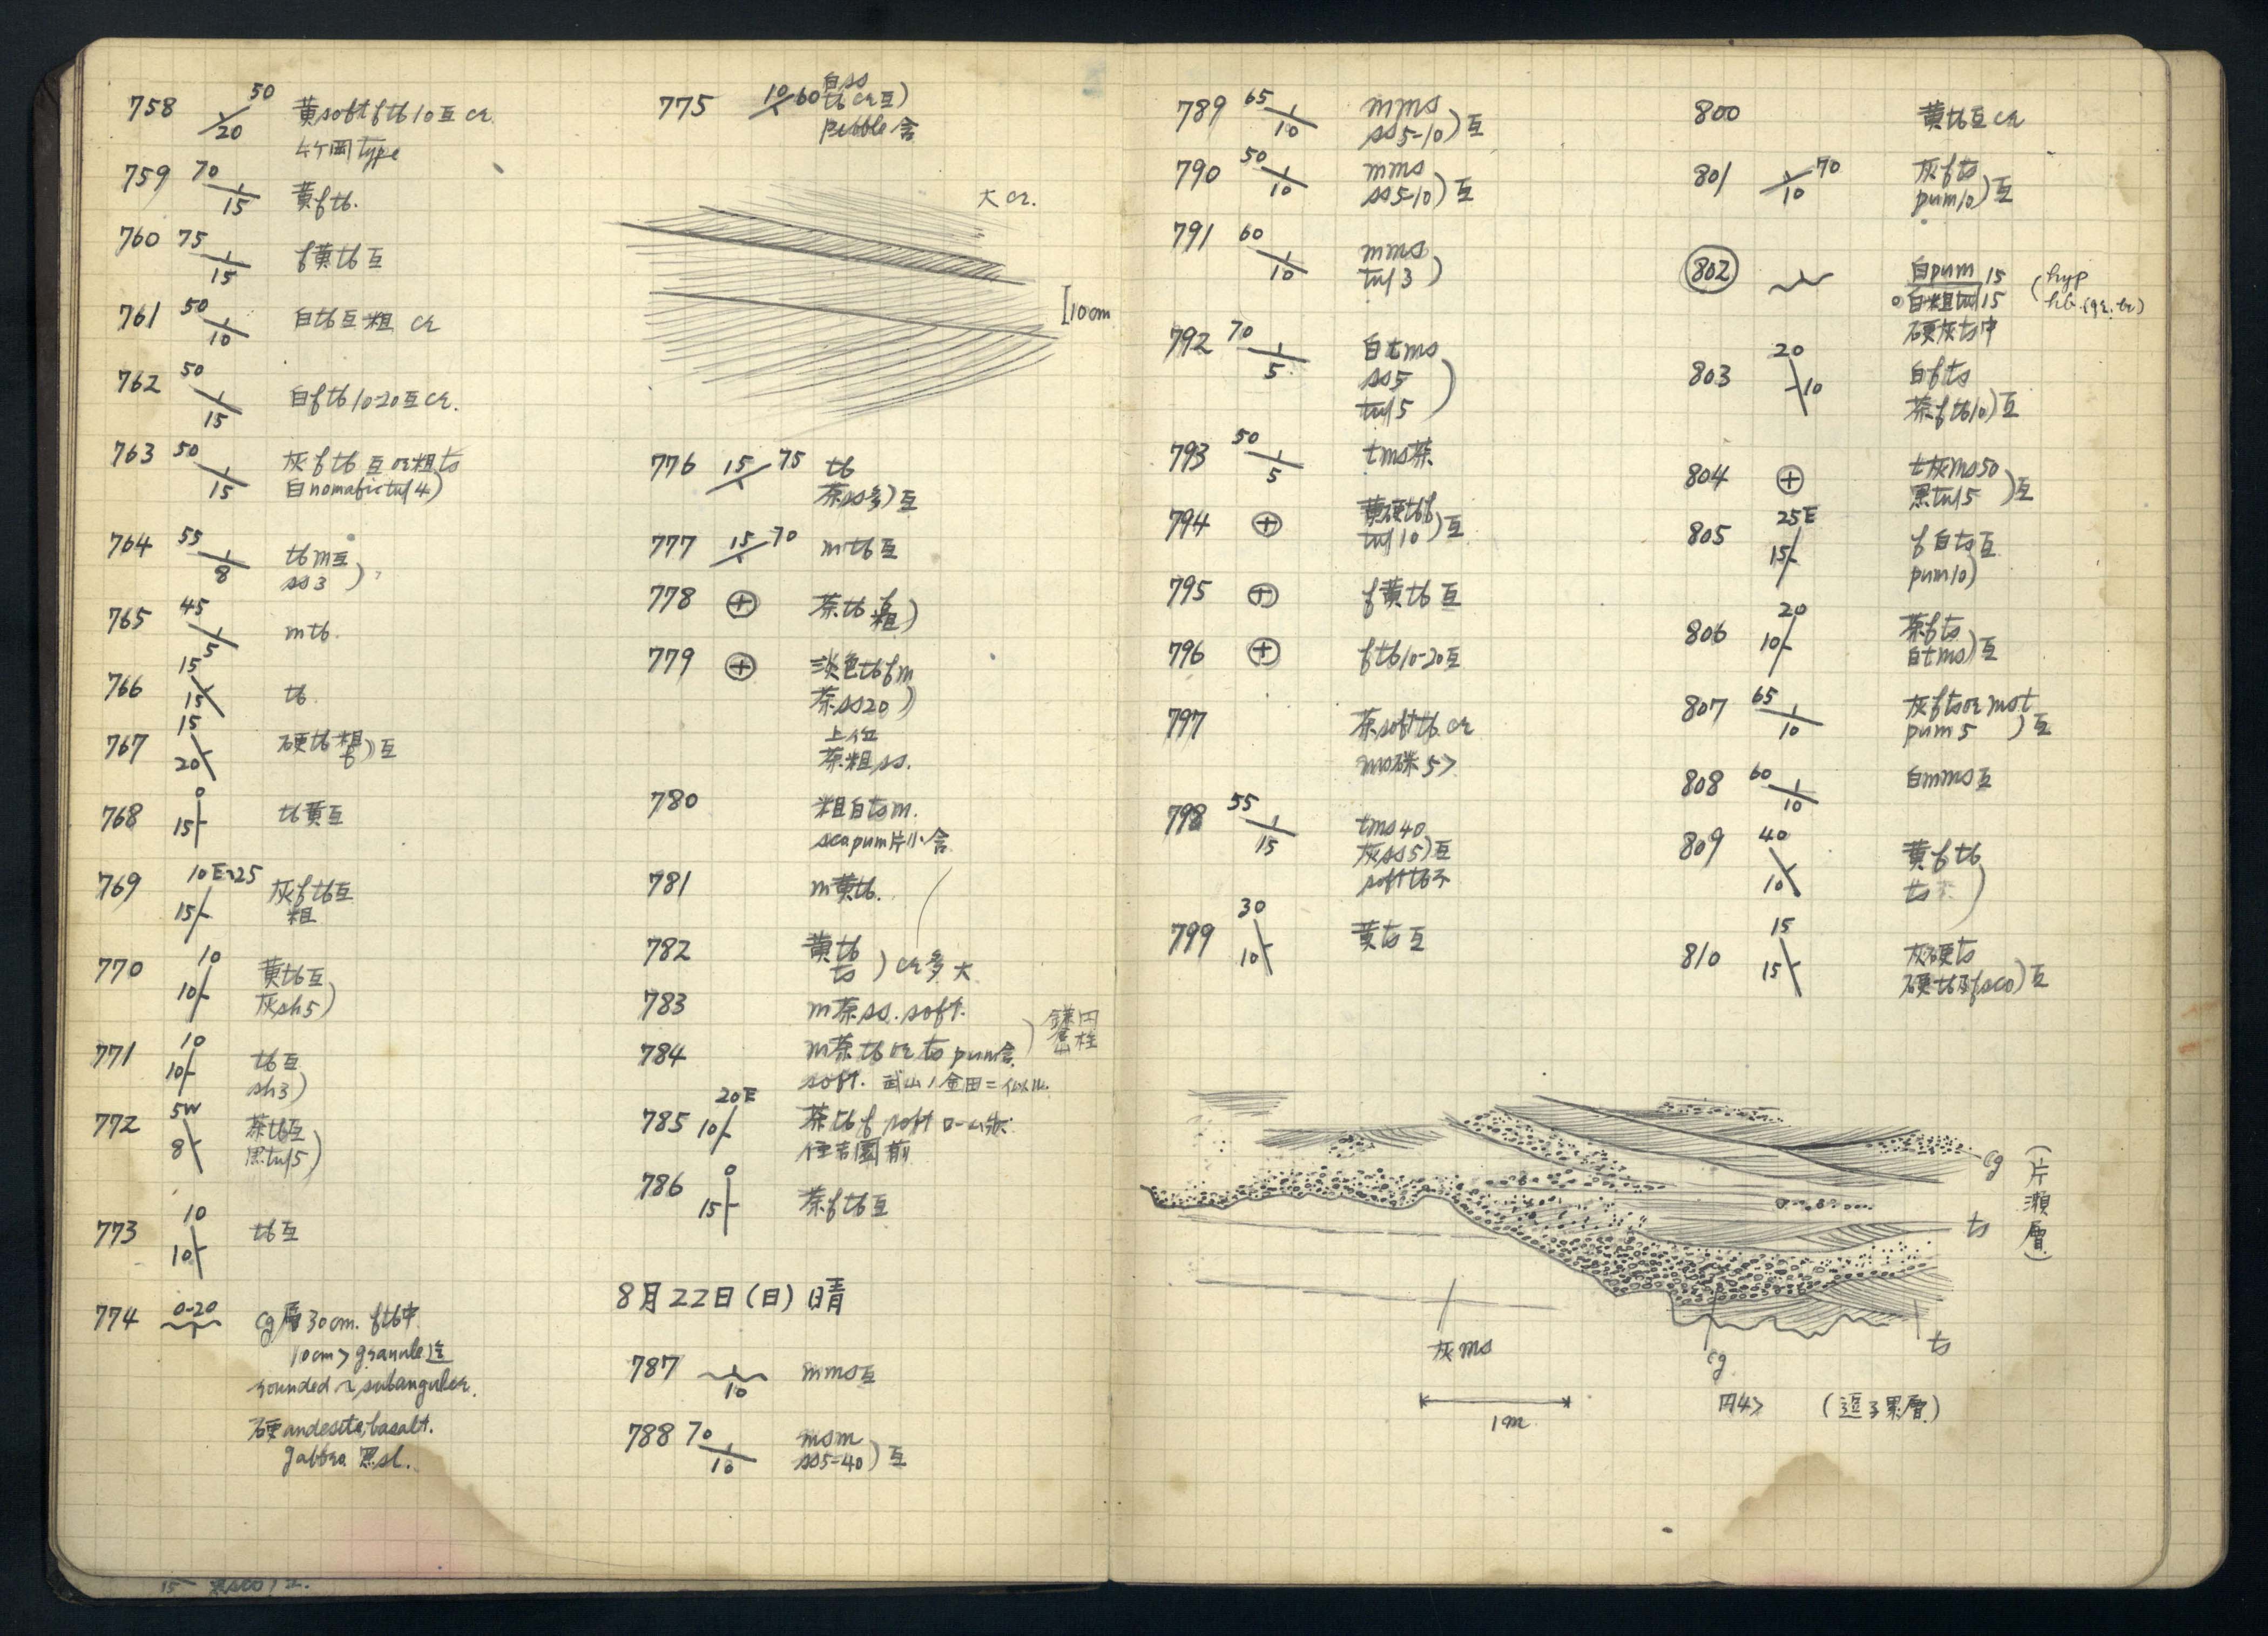 758 50 20 黄softftb10互cr.
4ケ岡type
759 70 15 黄ftb.
760 75 15 f黄tb互
761 50 10 白tb互粗 cr
762 50 15 白ftb10-20互cr.
763 50 15 灰ftb互or粗ts
白nomafictuf4)
764 55 8 tbm互
ss3)
765 45 5 mtb.
766 15 15 tb
767 15 20 硬tb粗f)互
768 0 15 tb黄互
769 10E~25 15 灰ftb互
粗
770 10 10 黄tb互
灰sh5)
771 10 10 tb互
sh3)
772 5W 8 茶tb互
黒tuf5)
773 10 10 tb互
774 0-20 cg層30cm. ftb中
10cm>granule迄
rounded~subangular.
硬andesite,basalt.
gabbro 黒sl.
775 10 60 白ss
tbcr互)
pebble含
大cr.
10cm
776 15 75 tb
茶ss多)互
777 15 70 mtb互
778 ⊕ 茶tb f粗)
779 ⊕ 淡色tbfm
茶ss20)
上位
茶粗ss.
780 粗白tsm.
scopum片小含
781 m黄tb.
782 黄tb
ts)cr多大
783 m茶ss.soft.
784 m茶tb or ts pum含.
soft. 武山ノ金田ニ似ル.
鎌倉山 円柱
785 20E 10 茶tbf soft ローム状
住吉園前
786 0 15 茶ftb互
8月22日(日)晴
787 10 mms互
788 70 10 msm
ss5-40)互
789 65 10 mms
ss5-10)互
790 50 10 mms
ss5-10)互
791 60 10 mms
tuf3)
792 70 5 白tms
ss5
tuf5)
793 50 5 tms茶
794 ⊕ 黄硬tbf
tuf10)互
795 ⊕ f黄tb互
796 ⊕ ftb10-20互
797 茶softtb.cr
mo礫5>
798 55 15 tms40
灰ss5)互
softtb不
799 30 10 黄ts互
800 黄tb互cr
801 70 10 灰fts
pum10)互
802 白pum15
白粗tuf15
硬灰ts中
(hyp
hb.(qz.tr)
803 20 10 白fts
茶ftb10)互
804 ⊕ t灰ms50
黒tuf5)互
805 25E 15 f白ts互
pum10)
806 20 10 茶fts
白tms)互
807 65 10 灰ftsor mst
pum5)互
808 60 10 白mms互
809 40 10 黄ftb
ts)
810 15 15 灰硬ts
硬tb及fsco)互
cg
ts
(片瀬層)
灰ms
cg
ts
円4>
(逗子累層)
1m